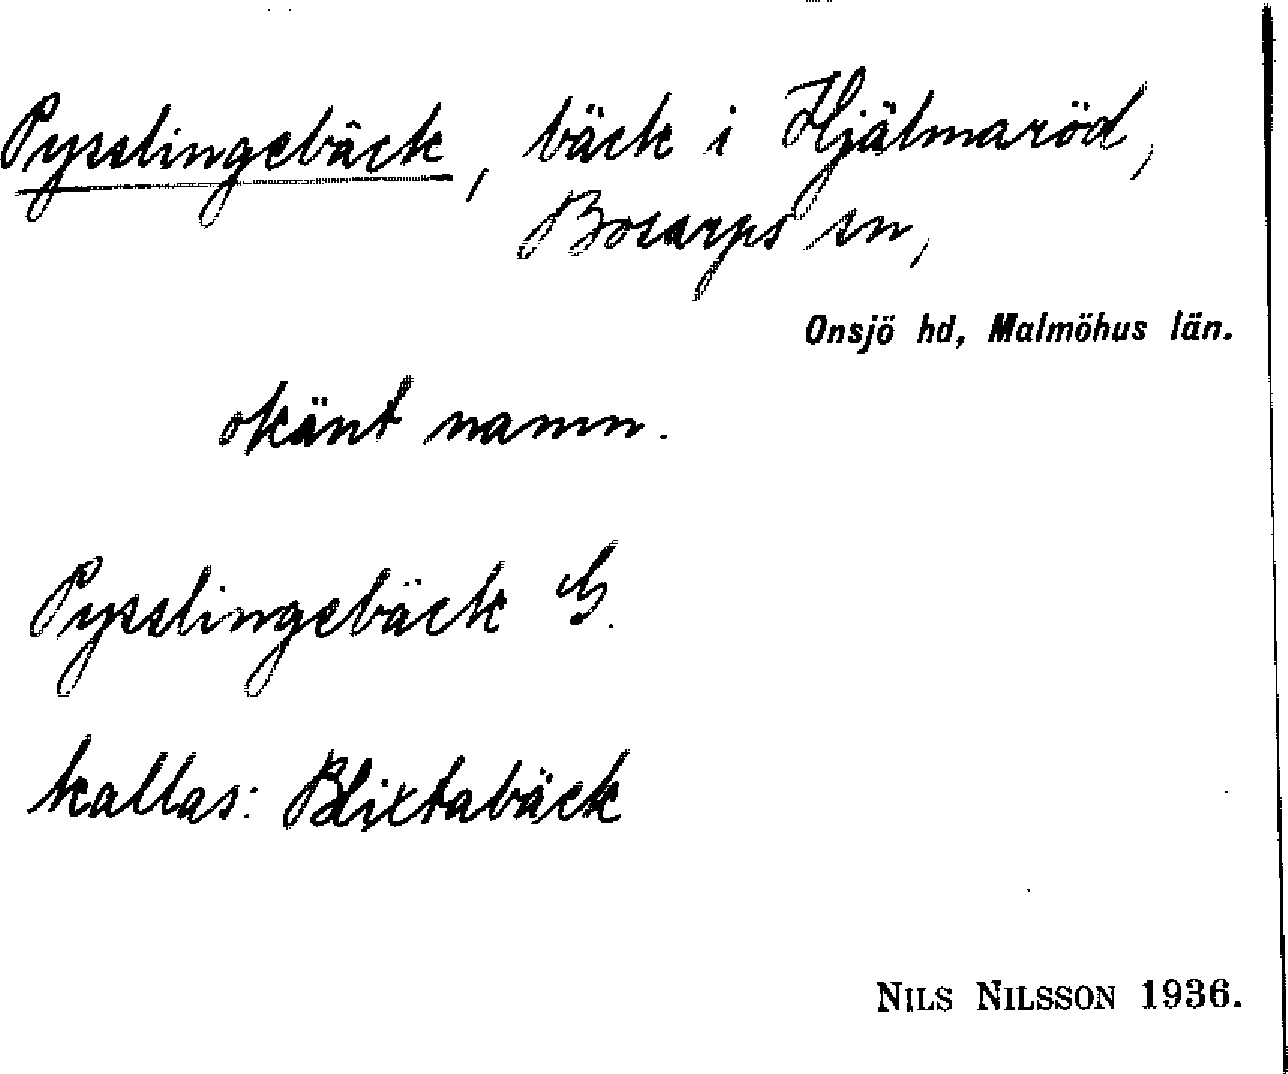 Pysslingebäck, bäck i Hjälmaröd,
Bosarps sn,
Onsjö hd, Malmöhus län.
okänt namn.
Pysslingebäck G.
kallas: Blixtabäck
NILS NILSSON 1936.